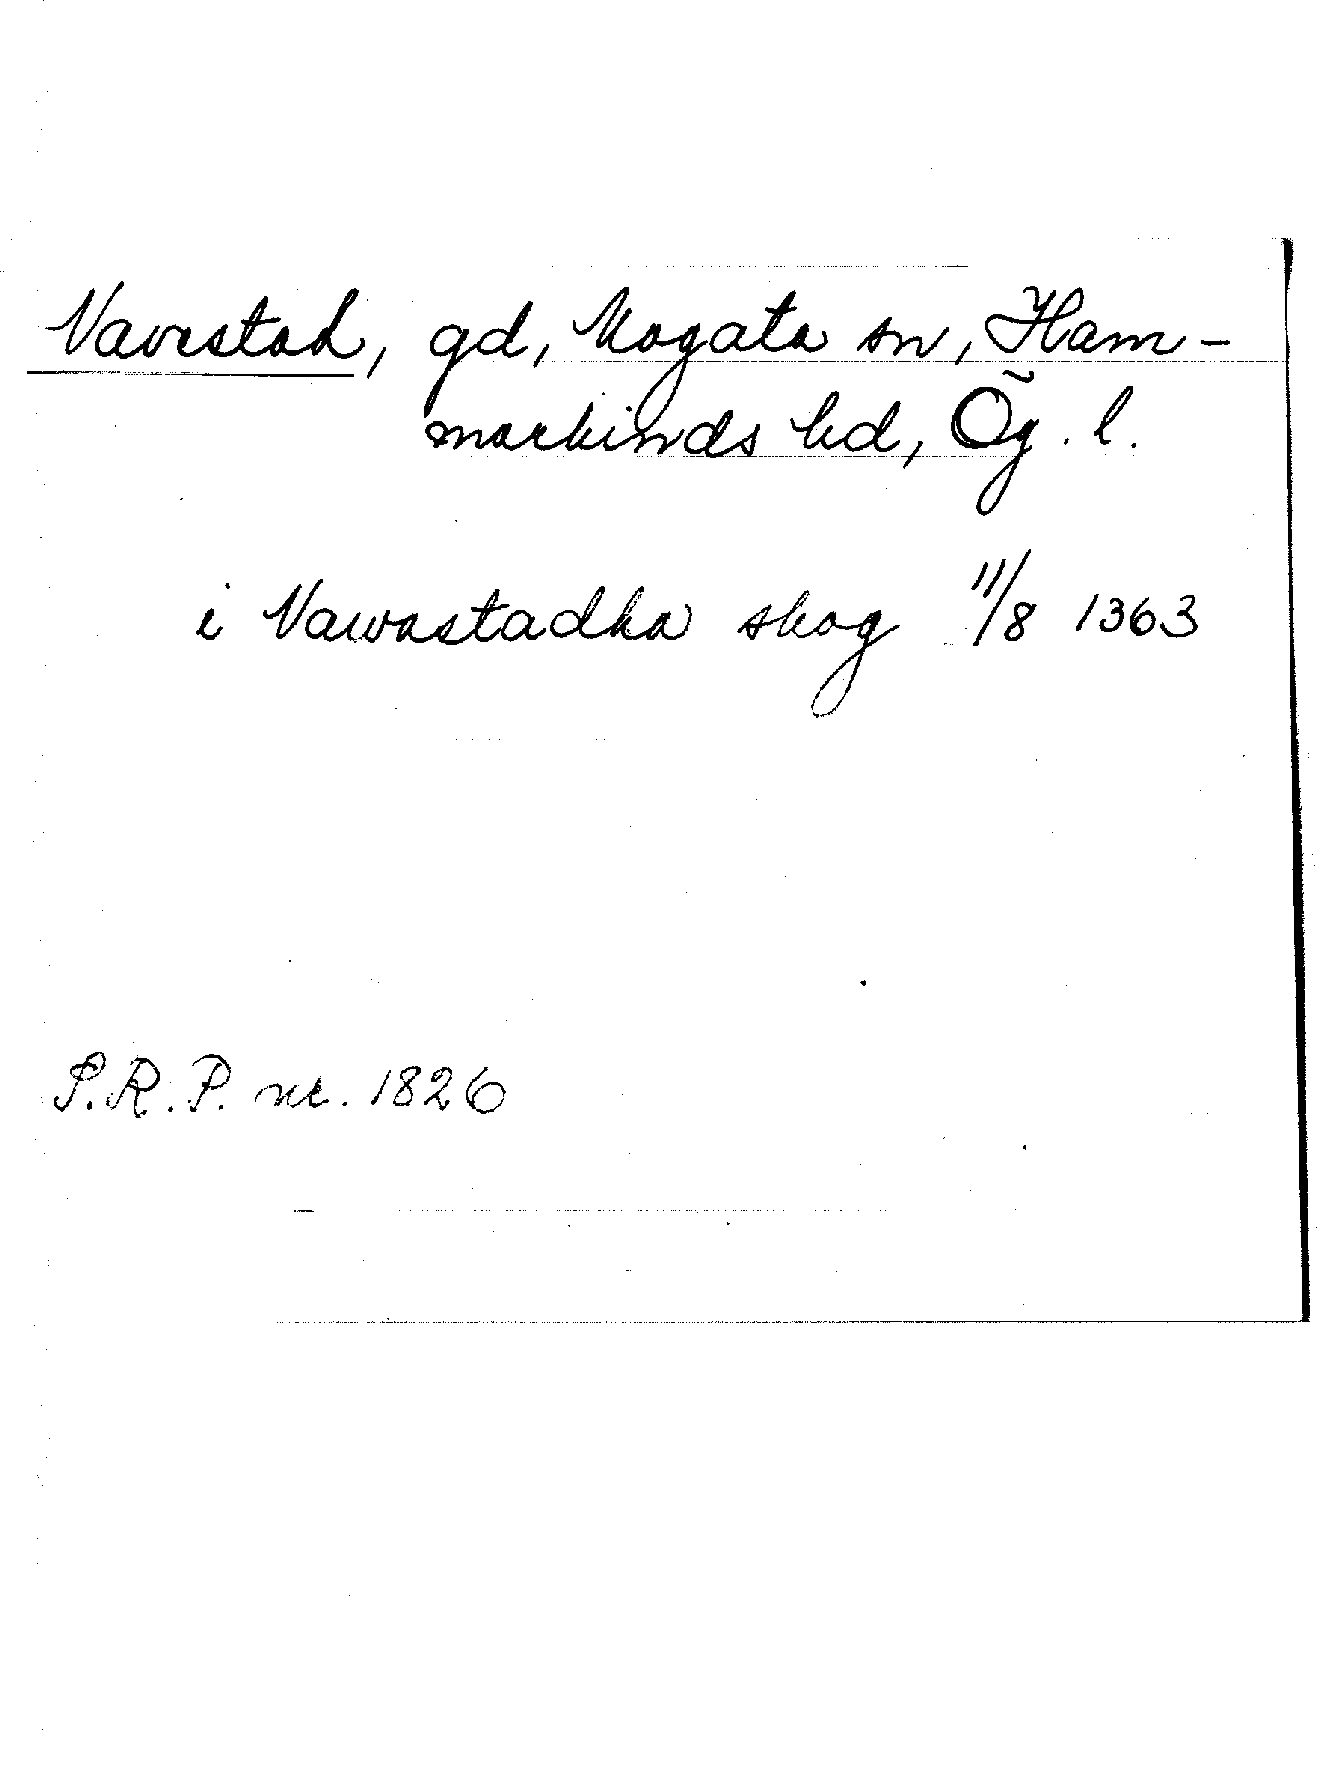 Vavrstad, gd, Mogata sn, Ham-
markinds hd, Ög. l.
i Vawrastadha skog 11/8 1363
S.R.P. nr. 1826